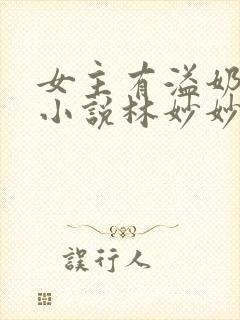 女主有溢奶
小說林妙妙
誤行人